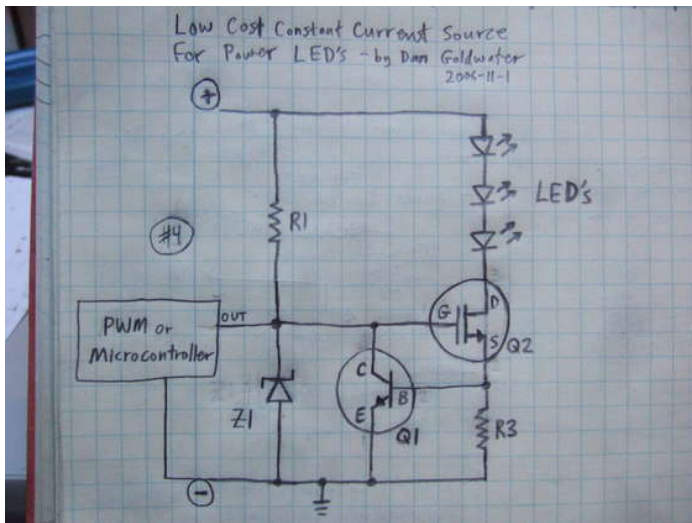 Low Cost Constant Current Source
For Power LED's - by Dan Goldwater
2006-11-1
+
R1
LED's
#4
OUT
PWM or
Microcontroller
G
D
S
Q2
C
B
E
Q1
Z1
R3
-